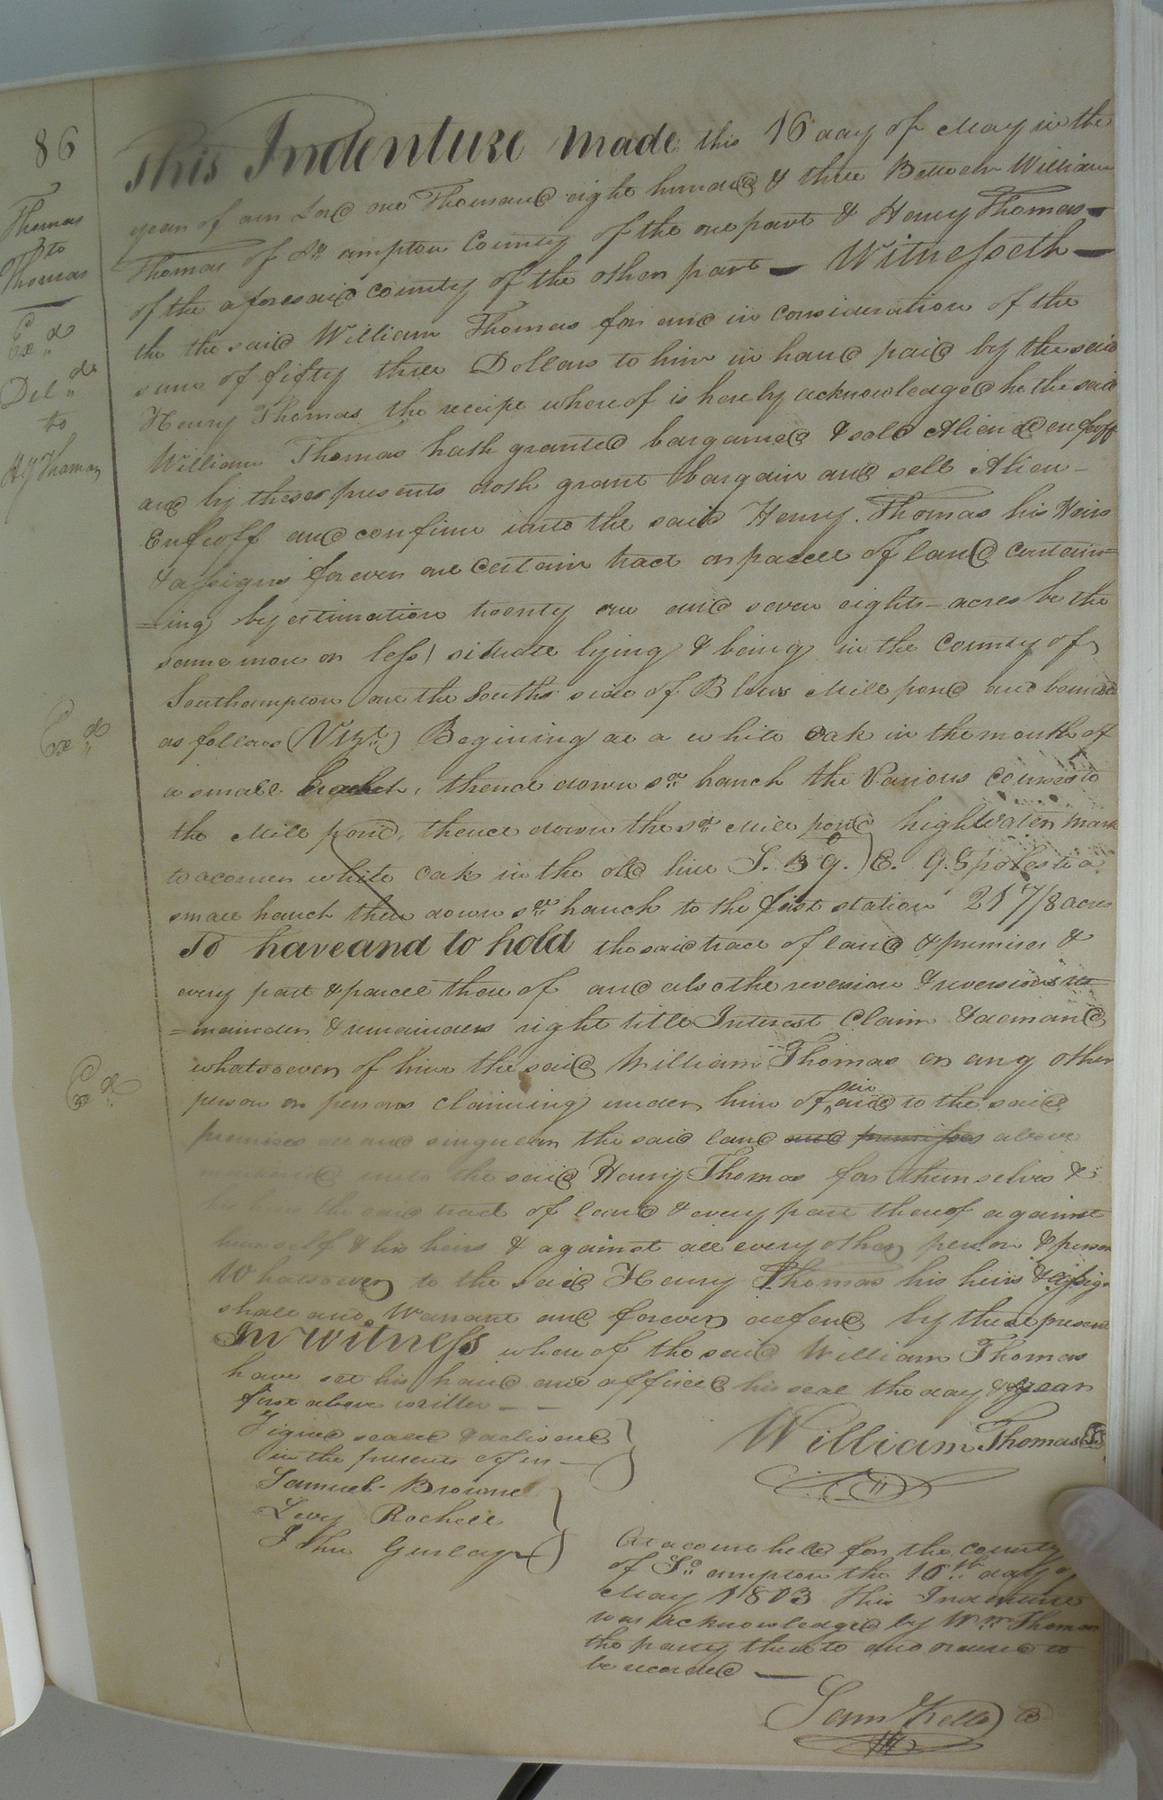 86
Thomas
to
Thomas
Exd
Deld
to
Hy Thomas
This Indenture made this 16 day of May in the
year of our Lord one Thousand eight hundred & three Between William
Thomas of So ampton County of the one part & Henry Thomas
of the aforesaid county of the other part — Witnesseth —
the the said William Thomas for and in consideration of the
sum of fifty three Dollars to him in hand paid by the said
Henry Thomas the receipt whereof is hereby acknowledged he the said
William Thomas hath granted bargained & sold Aliend enfeoff
and by theses presents doth grant bargain and sell Alien
Enfeoff and confirm unto the said Henry Thomas his Heirs
& assigns forever one certain tract or parcel of land contain=
=ing by estimation twenty one and seven eights acres be the
same more or less) situate lying & being in the County of
Southampton on the South side of Blows Mill pond and bound
as follows (Vizt.) Begining at a white oak in the mouth of
a small thence down sd. branch the Various courses to
the Mill pond, thence down the sd. Mill pond high water mark
to a corner white oak in the old line S. 39.) E. 95 poles to a
small branch then down sd. branch to the first station 21 7/8 acres
To have and to hold the said tract of land & premises &
every part & parcel thereof and also the reversion & reversions re=
=mainder & remainders right title Interest Claim & demand
whatsoever of him the said William Thomas or any other
person or persons claiming under him of, in and to the said
premises all and singular the said land and premises above
unto the said Henry Thomas for themselves &
his heirs the said tract of land & every part thereof against
himself & his heirs & against all every other person & person
Whatsoever to the said Henry Thomas his heirs & assigns
shall and Warrant and forever defend by these presents
In witness whereof the said William Thomas
have set his hand and affixed his seal the day & year
first above written — —
Exd
Exd
Signed sealed & delivered
in the presents of us —
Samuel Browne
Levy Rochell
John Gurley
William Thomas
At a court held for the county
of So ampton the 16th day of
May 1803 This Indenture
was acknowledged by Wm Thomas
the party thereto and ordered to
be recorded —
Sam Kello